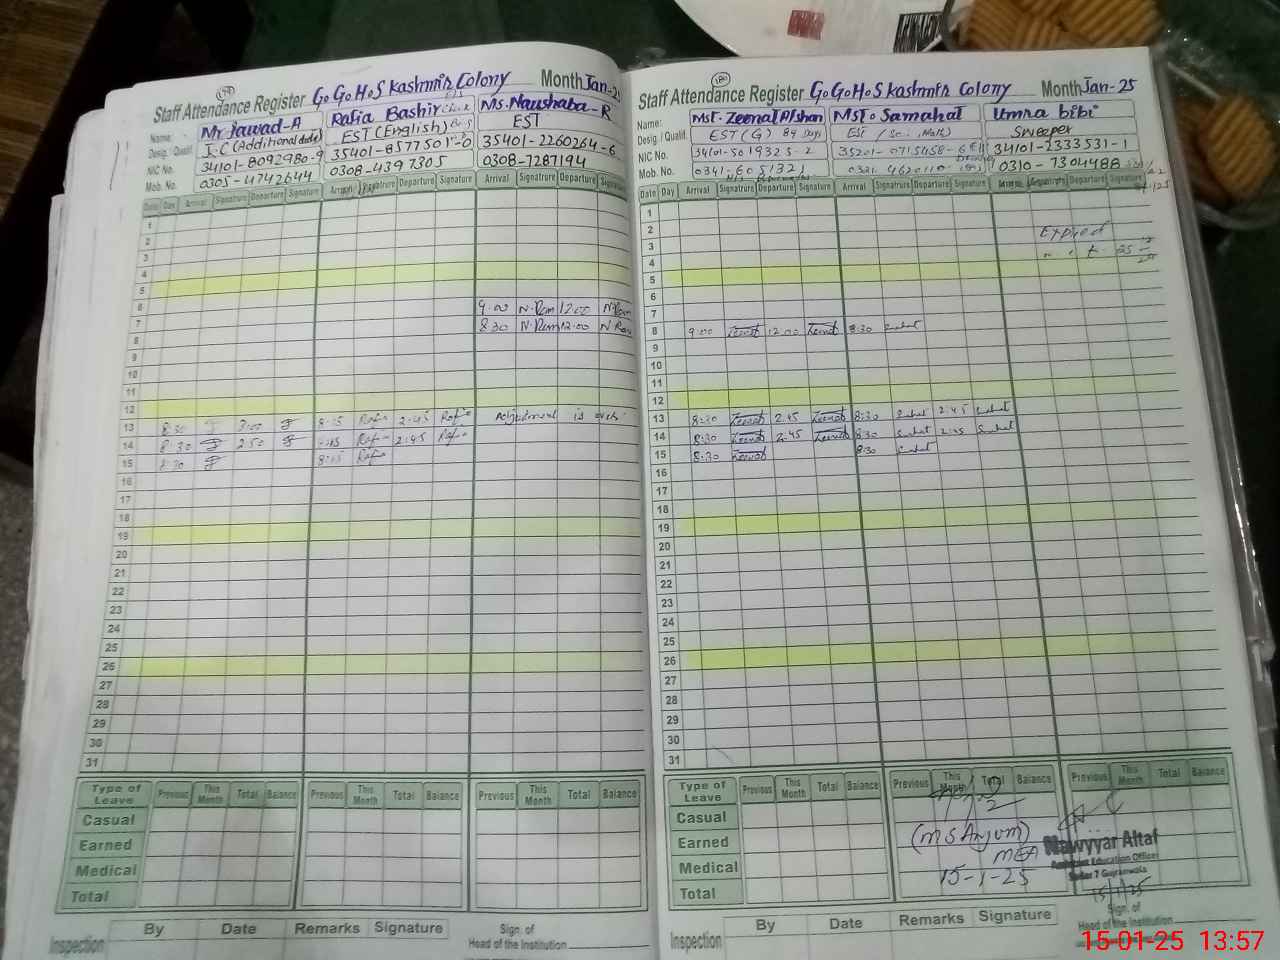 Staff Attendance Register GoGoHoS Kashmir Colony Month Jan-25
Name: Mr Jawad-A Rafia Bashir Ms. Naushaba-R
Desig./ Qualif. I.C (Additional duty) EST (English) EST
NIC No. 34101-8092980-9 35401-8577501-0 35401-2260264-6
Mob. No. 0305-4742644 0308-4397305 0308-7287194
Date Day Arrival Signature Departure Signature Arrival Departure Signature Arrival Signature Departure Signature
1
2
3
4
5
6 9 00 N.Ram 12:00 N.Ram
7 8 30 N.Ram 12:00 N Ram
8
9
10
11
12
13 8:30 3:00 8:15 Rafia 2:45 Rafia Adjustment is over
14 8:30 2:50 8:15 Rafia 2:45 Rafia
15 8:30 8:15 Rafia
16
17
18
19
20
21
22
23
24
25
26
27
28
29
30
31
Type of Leave Previous This Month Total Balance Previous This Month Total Balance Previous This Month Total Balance
Casual
Earned
Medical
Total
Inspection By Date Remarks Signature Sign. of Head of the Institution
Staff Attendance Register GoGoHoS Kashmir Colony Month Jan-25
Name: Mst. Zeenat Afshan Mst. Samahat Umra bibi
Desig./ Qualif. EST (G) 89 Days EST Sweeper
NIC No. 34101-5019325-2 35201-0715458-6 34101-2333531-1
Mob. No. 0341-6051321 0321 4620110 0310-7304488
Date Day Arrival Signature Departure Signature Arrival Signature Departure Signature Departure Signature
1
2 Expired
3
4
5
6
7
8 9:00 Zeenat 12 00 Zeenat 8:30
9
10
11
12
13 8:30 Zeenat 2:45 Zeenat 8:30 2:45
14 8:30 Zeenat 2:45 Zeenat 8:30 2:45
15 8:30 Zeenat 8:30
16
17
18
19
20
21
22
23
24
25
26
27
28
29
30
31
Type of Leave Previous This Month Total Balance Previous This Month Total Balance Previous This Month Total Balance
Casual
Earned
Medical
Total
(MS Anjum)
MEA
15-1-25
Nawyyar Altaf
Assistant Education Officer
Gujranwala
15/1/25
Inspection By Date Remarks Signature Sign. of Head of the Institution
15-01-25 13:57